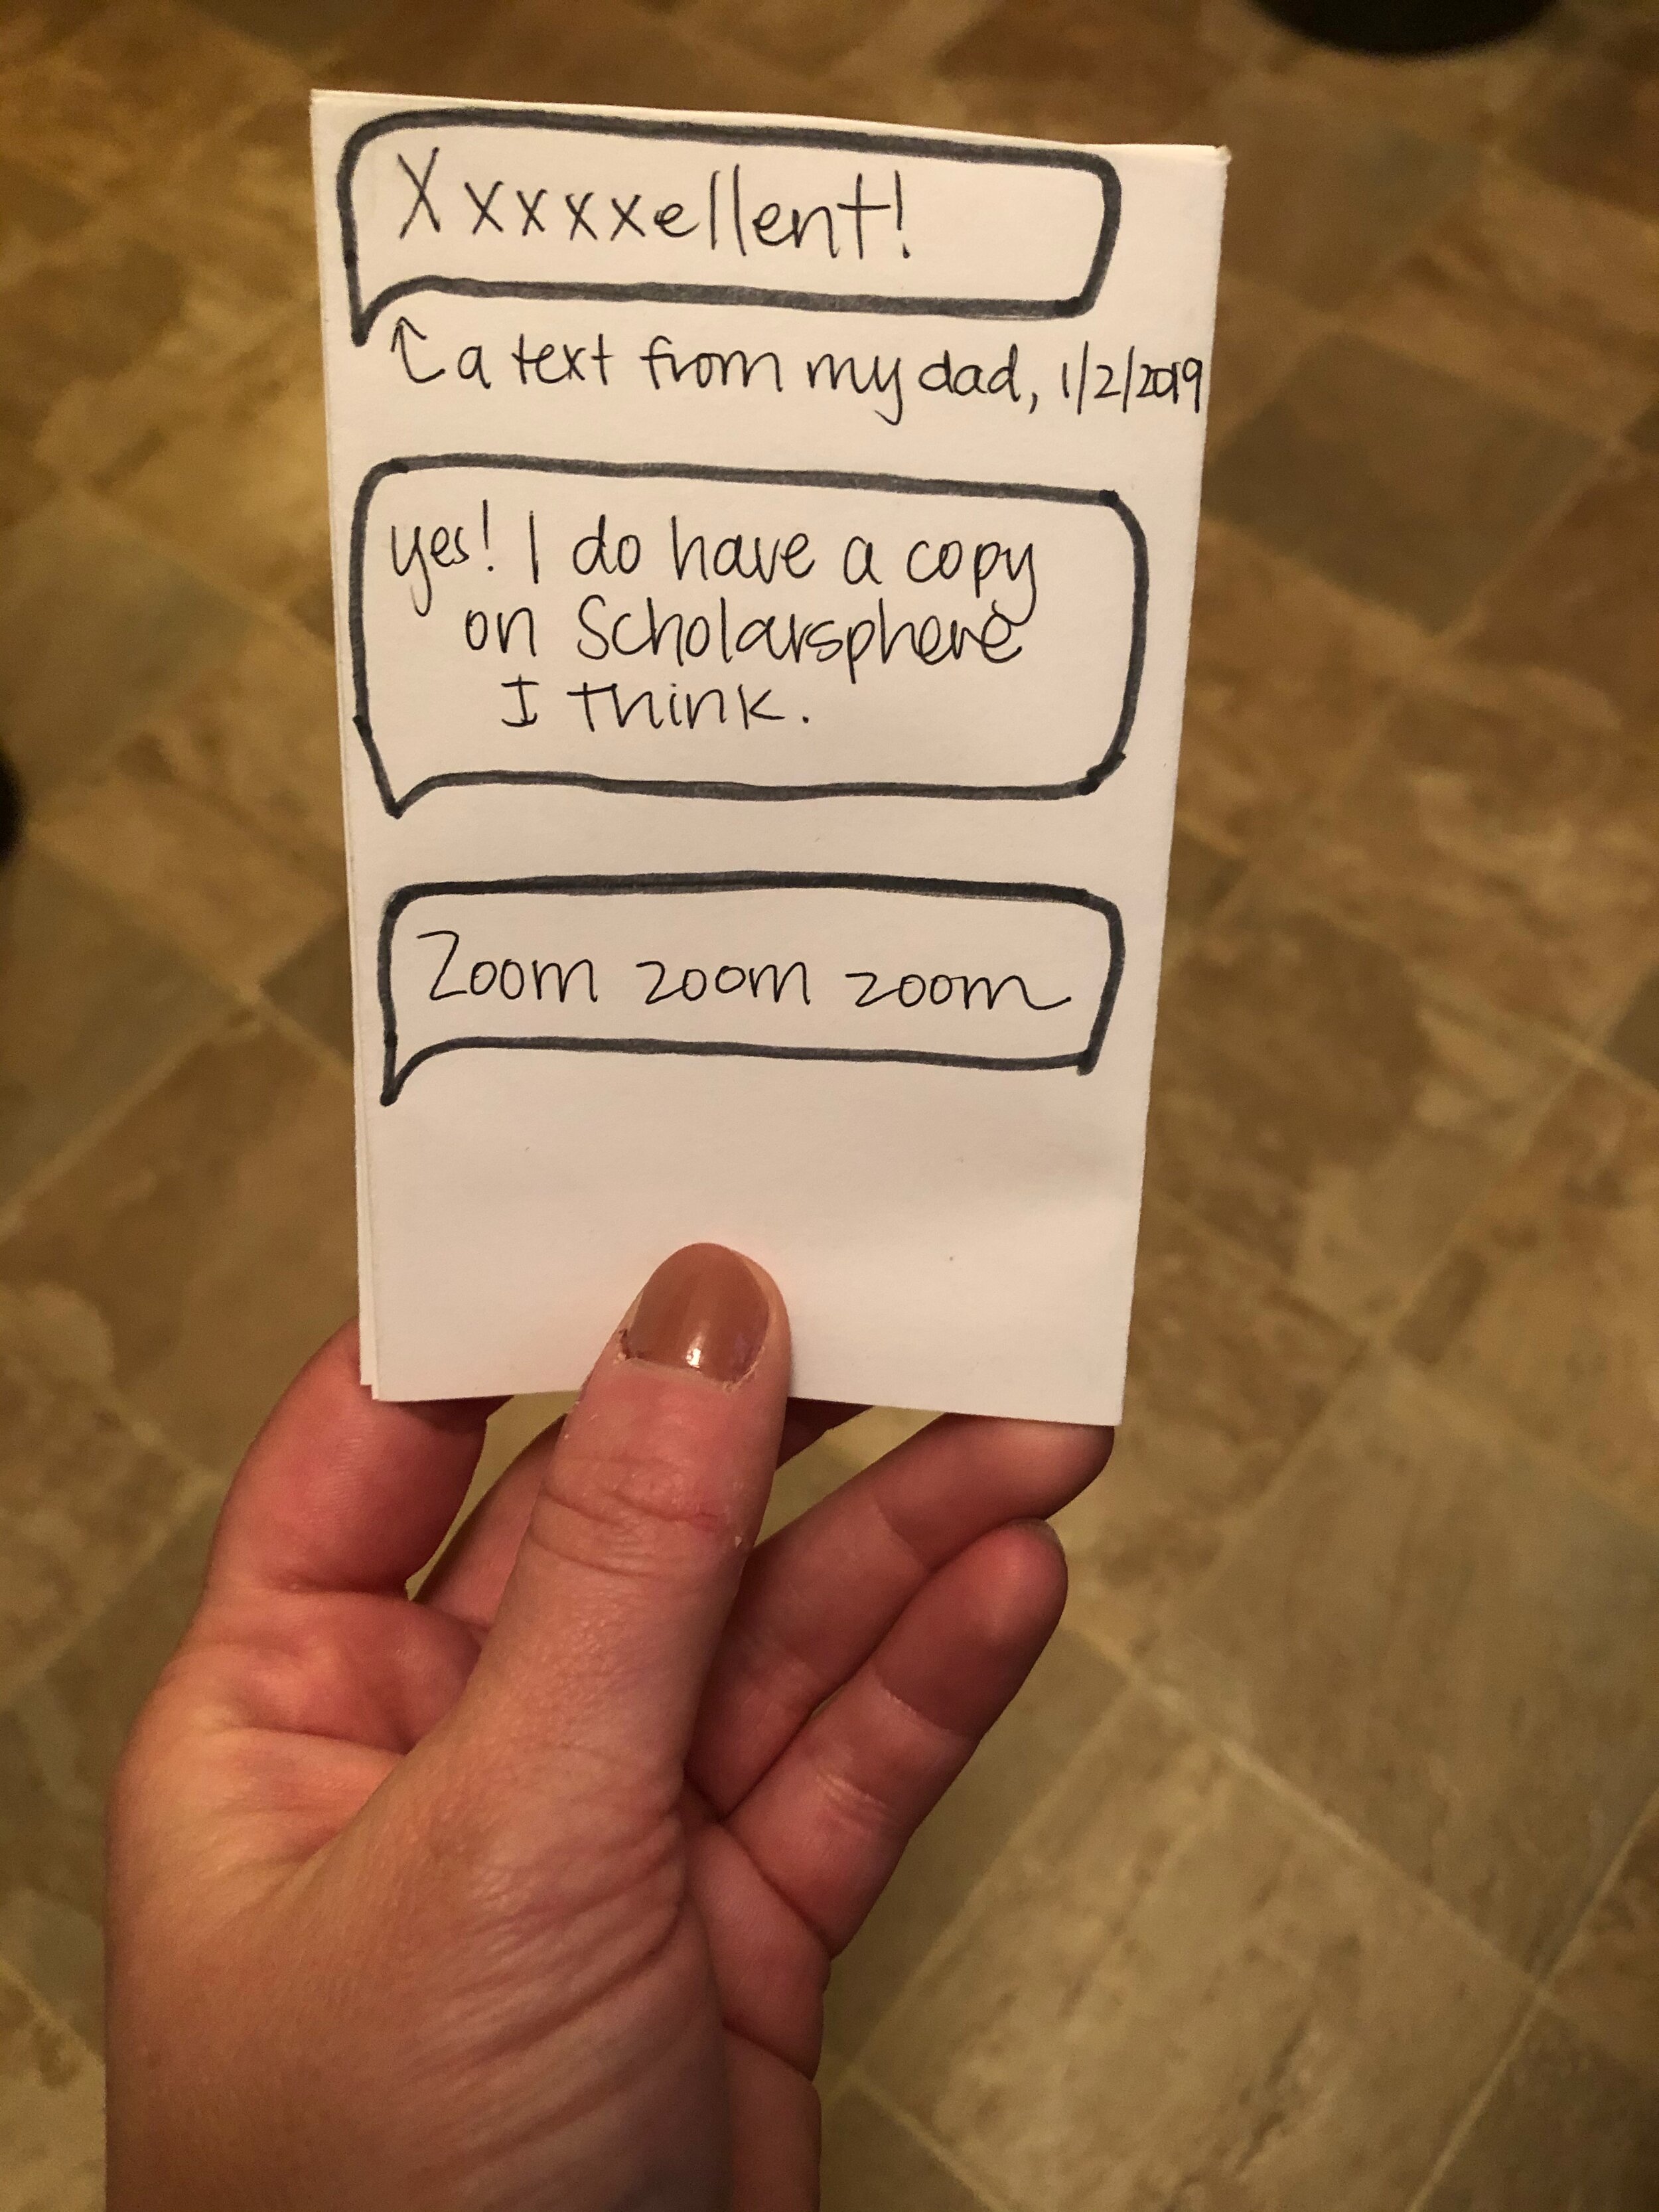 Xxxxxxellent!
↑a text from my dad, 1/2/2019
yes! I do have a copy
on Scholarsphere
I think.
Zoom zoom zoom